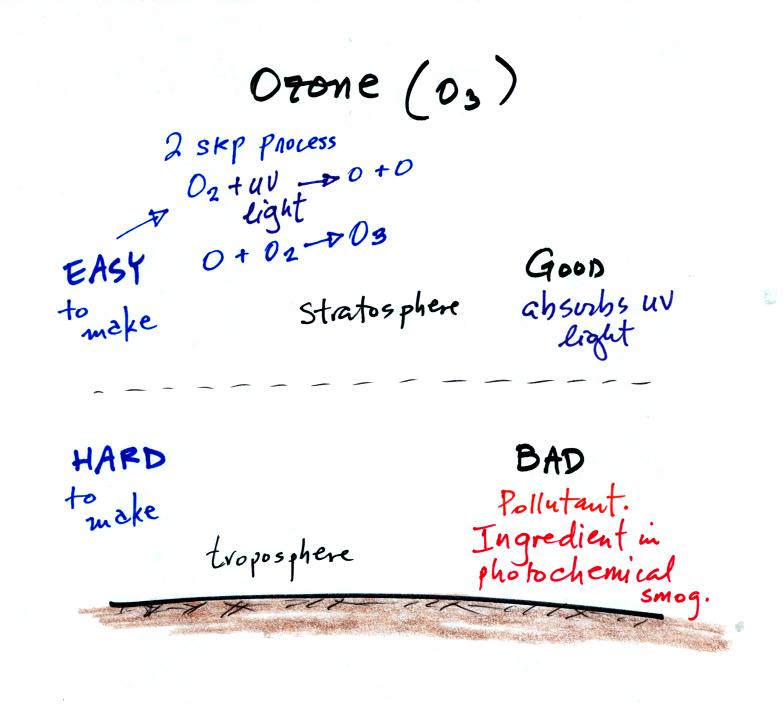 Ozone (O3)
2 step process
O2 + uv light → O + O
O + O2 → O3
EASY
to make
stratosphere
GOOD
absorbs uv
light
HARD
to make
troposphere
BAD
Pollutant.
Ingredient in
photochemical
smog.